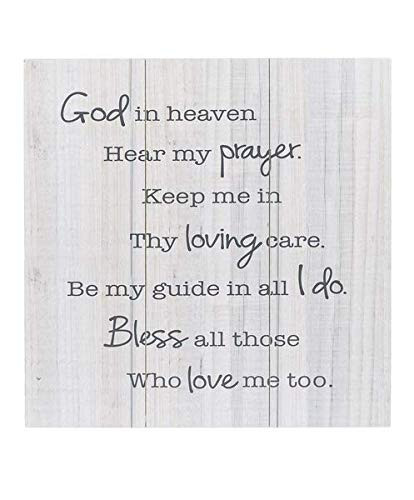 God in heaven
Hear my prayer.
Keep me in
Thy loving care.
Be my guide in all I do.
Bless all those
Who love me too.